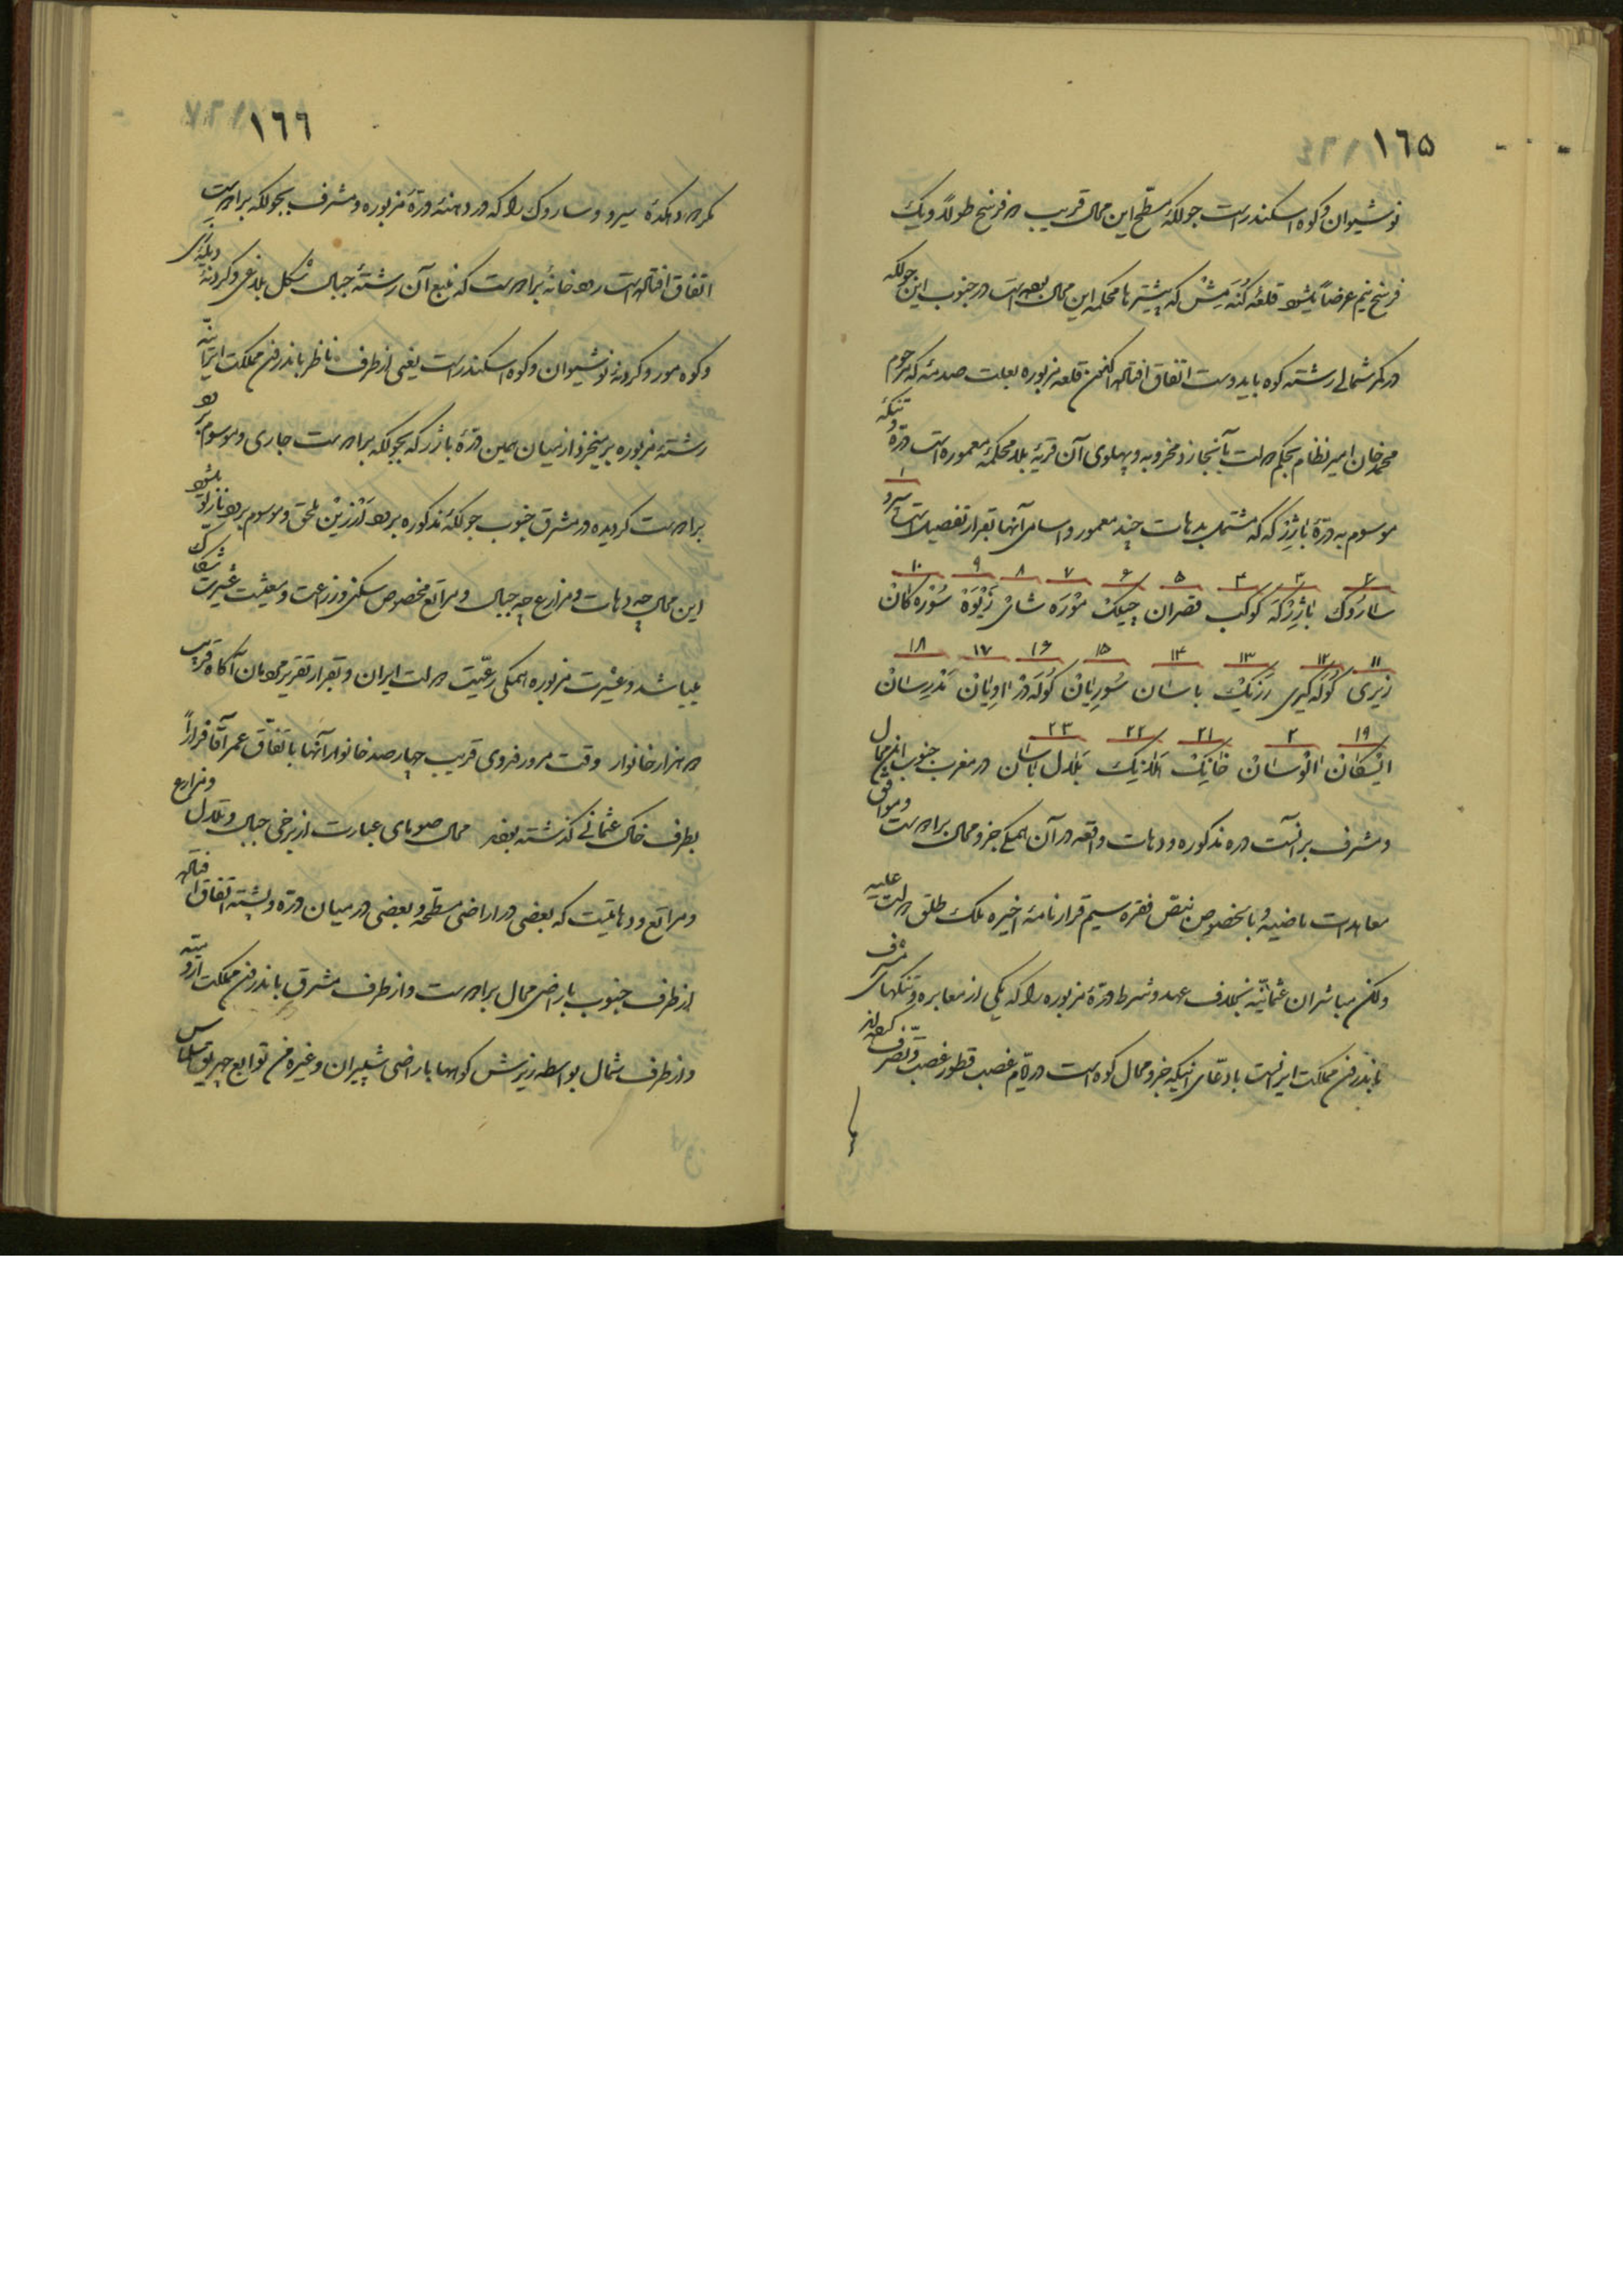 ١٦٥
نوشیوان و کوه اسکندر است جولکهٔ مسطح این محال قریب دو فرسخ طولاً و یک
فرسخ نیم عرضاً میشود قلعهٔ کنه میش که پیشتر ها محکمه این محال بوده است در جنوب این جولکه
در کمر شمالی رشته کوه باید وست اتفاق افتاده الکن قلعه مزبوره بعلت صدمهٔ که مرحوم
محمد خان امیر نظام بحکم دولت بآنجا زد مخروبه و پهلوی آن قریهٔ بلد محکمهٔ معموره است درّه و تنگهٔ
موسوم به درّهٔ باژرکه که مشتمل بدهات چند معمور و اسامی آنها بقرار تفصیل است ١ سیرو
٢ ٣ ۴ ۵ ۶ ٧ ٨ ٩ ١٠
سارُوک باژِرْکَه کوکب قصران چیلک مُوْرَه شانْ زَیْوَهْ سُوْره کانْ
١١ ١٢ ١٣ ١۴ ١۵ ١۶ ١٧ ١٨
زیری گوله‌گیری رَزیکْ باسان سُوریانْ کوُلَه‌دْز اویانْ نَدْرِسانْ
١٩ ٢ ٢١ ٢٢ ٢٣
ایشکان انوسان خانیک المزیک بلدل باسان در مغرب جنوب این محال
و مشرف برانست دره مذکوره و دهات واقعه در آن همگی جزو محال برادوست و موافق
معاهدات ماضیه و بالخصوص بنص فقره سیم قرارنامهٔ اخیره ملک طلق دولت علیه
ولکن مباشران عثمانیّه بخلاف عهد و شرط درّهٔ مزبوره را که یکی از معابره و تنگهای مشرف
باندرون مملکت ایرانست بادّعای اینکه جزو محال کوه است در ایّام غصب قطور غصب و تصرّف کرده‌اند
١٦٦
مگر دو دهکدهٔ سیرو و ساروک را که در دهنهٔ درّهٔ مزبوره و مشرف بجولکه برادوست
اتفاق افتاده است رودخانهٔ برادوست که منبع آن رشتهٔ جبال شکل بلاغی و کردنهٔ دیلیزی
و کوه مور و کردنهٔ نوشیوان و کوه اسکندر است یعنی از طرف ناظر باندرون مملکت ایرانیّه
رشتهٔ مزبوره بر میخیزد از میان همین درّهٔ باژرکه بجولکه برادوست جاری و موسوم برود
برادوست کردیده در مشرق جنوب جولکهٔ مذکوره برود اَرْزینْ ملحق و موسوم برود نازلو میشود
این محال چه دهات و مزارع چه جبال و مراتع مخصوص سکنی و زراعت و معیشت عشیرت شکاک
میباشد و عشیرت مزبوره همگی رعیّت دولت ایران و بقرار تقریر مردمان آکاه قریب
دو هزار خانوار وقت مرور فدوی قریب چهارصد خانوار آنها باتفاق عمر آقا فراراً
بطرف خاک عثمانی گذشته بودند محال صومای عبارت از برخی جبال و تلال و مزارع
و مراتع و دهاتیست که بعضی در اراضی مسطحه و بعضی در میان درّه و پشته اتفاق افتاده
از طرف جنوب باراضی محال برادوست و از طرف مشرق باندرون مملکت ارومیّه
و از طرف شمال بواسطه ریزش کوهها باراضی شپیران و غیره من توابع چهریق سلماس